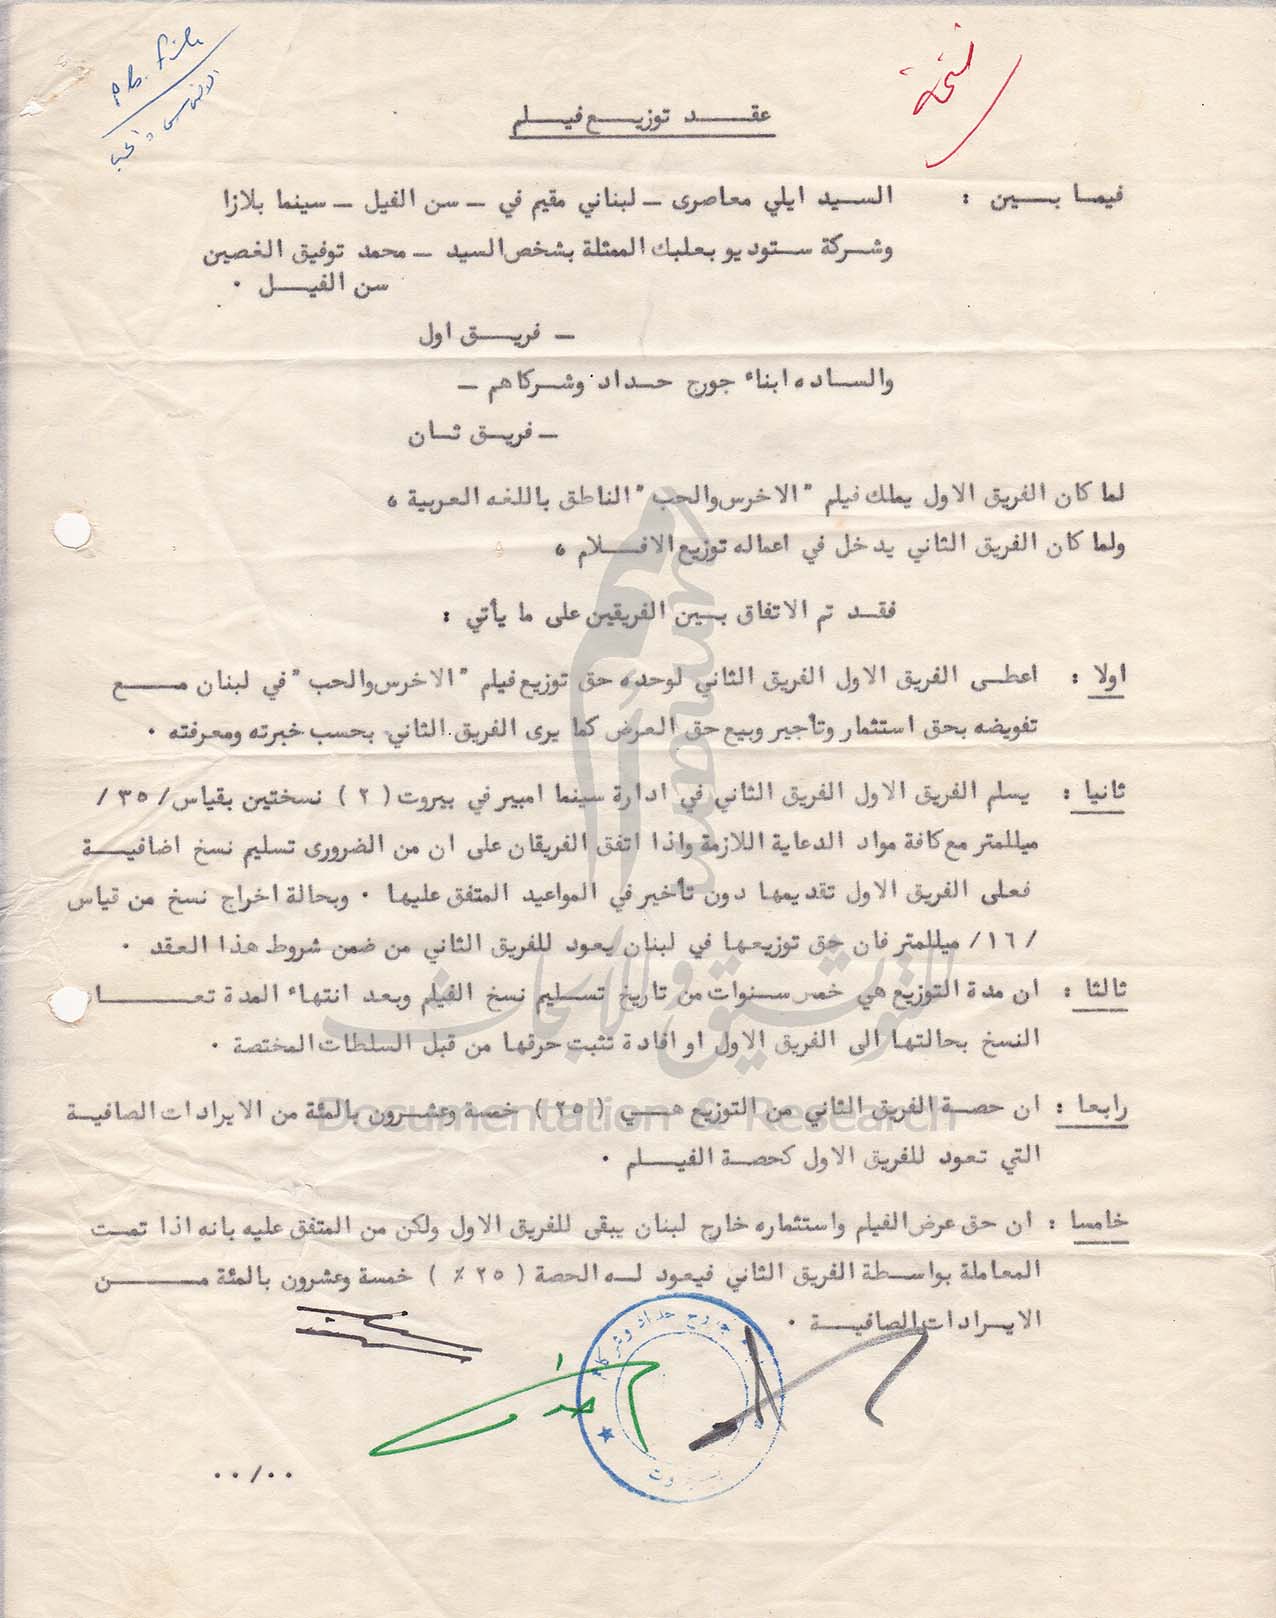 نسخة
file
الاخرس والحب
عقـــد توزيــع فيــلم
فيمــا بــين : السيــد ايلي معاصرى ــ لبناني مقيم في ــ سن الفيل ــ سينما بلازا
وشــركة ستــوديو بعلبك الممثلة بشخص السيد ــ محمد توفيق الغصين
سن الفيــل ٠
ــ فريــق اول
والســاده ابناء جورج حــداد وشــركاهم ــ
ــ فريــق ثــان
لما كان الفريق الاول يملك فيلم " الاخرس والحب " الناطق باللغه العربية ،
ولما كان الفريق الثاني يدخل في اعماله توزيع الافــلام ،
فقــد تم الاتفاق بــين الفريقين على ما يأتي :
اولا : اعطــى الفريق الاول الفريق الثاني لوحده حق توزيع فيلم " الاخرس والحب " في لبنان مــع
تفويضه بحق استثمار وتأجير وبيع حق العرض كما يرى الفريق الثاني بحسب خبرته ومعرفته ٠
ثانيا : يسلم الفريق الاول الفريق الثاني في ادارة سينما امبير في بيروت ( ٢ ) نسختين بقياس /٣٥/
ميللمتر مع كافة مواد الدعاية اللازمة واذا اتفق الفريقان على ان من الضرورى تسليم نسخ اضافيــة
فعلى الفريق الاول تقديمها دون تأخير في المواعيد المتفق عليها ٠ وبحالة اخراج نسخ من قياس
/١٦/ ميللمتر فان حق توزيعها في لبنان يعود للفريق الثاني من ضمن شروط هذا العقد ٠
ثالثا : ان مدة التوزيع هي خمس سنوات من تاريخ تسليم نسخ الفيلم وبعد انتهاء المدة تعــاد
النسخ بحالتها الى الفريق الاول او افادة تثبت حرقها من قبل السلطات المختصة ٠
رابعا : ان حصــة الفريق الثاني من التوزيع هــي ( ٢٥ ) خمسة وعشرون بالمئة من الايرادات الصافيــة
التي تعود للفريق الاول كحصة الفيــلم ٠
خامسا : ان حق عرض الفيلم واستثماره خارج لبنان يبقى للفريق الاول ولكن من المتفق عليه بانه اذا تمــت
المعاملة بواسطة الفريق الثاني فيعود لــه الحصة ( ٢٥ ٪ ) خمسة وعشرون بالمئة مــن
الايــرادات الصافيــة ٠
جورج حداد وشركاه
بيروت
٠٠/٠٠
التوثيق والأبحاث
Documentation & Research